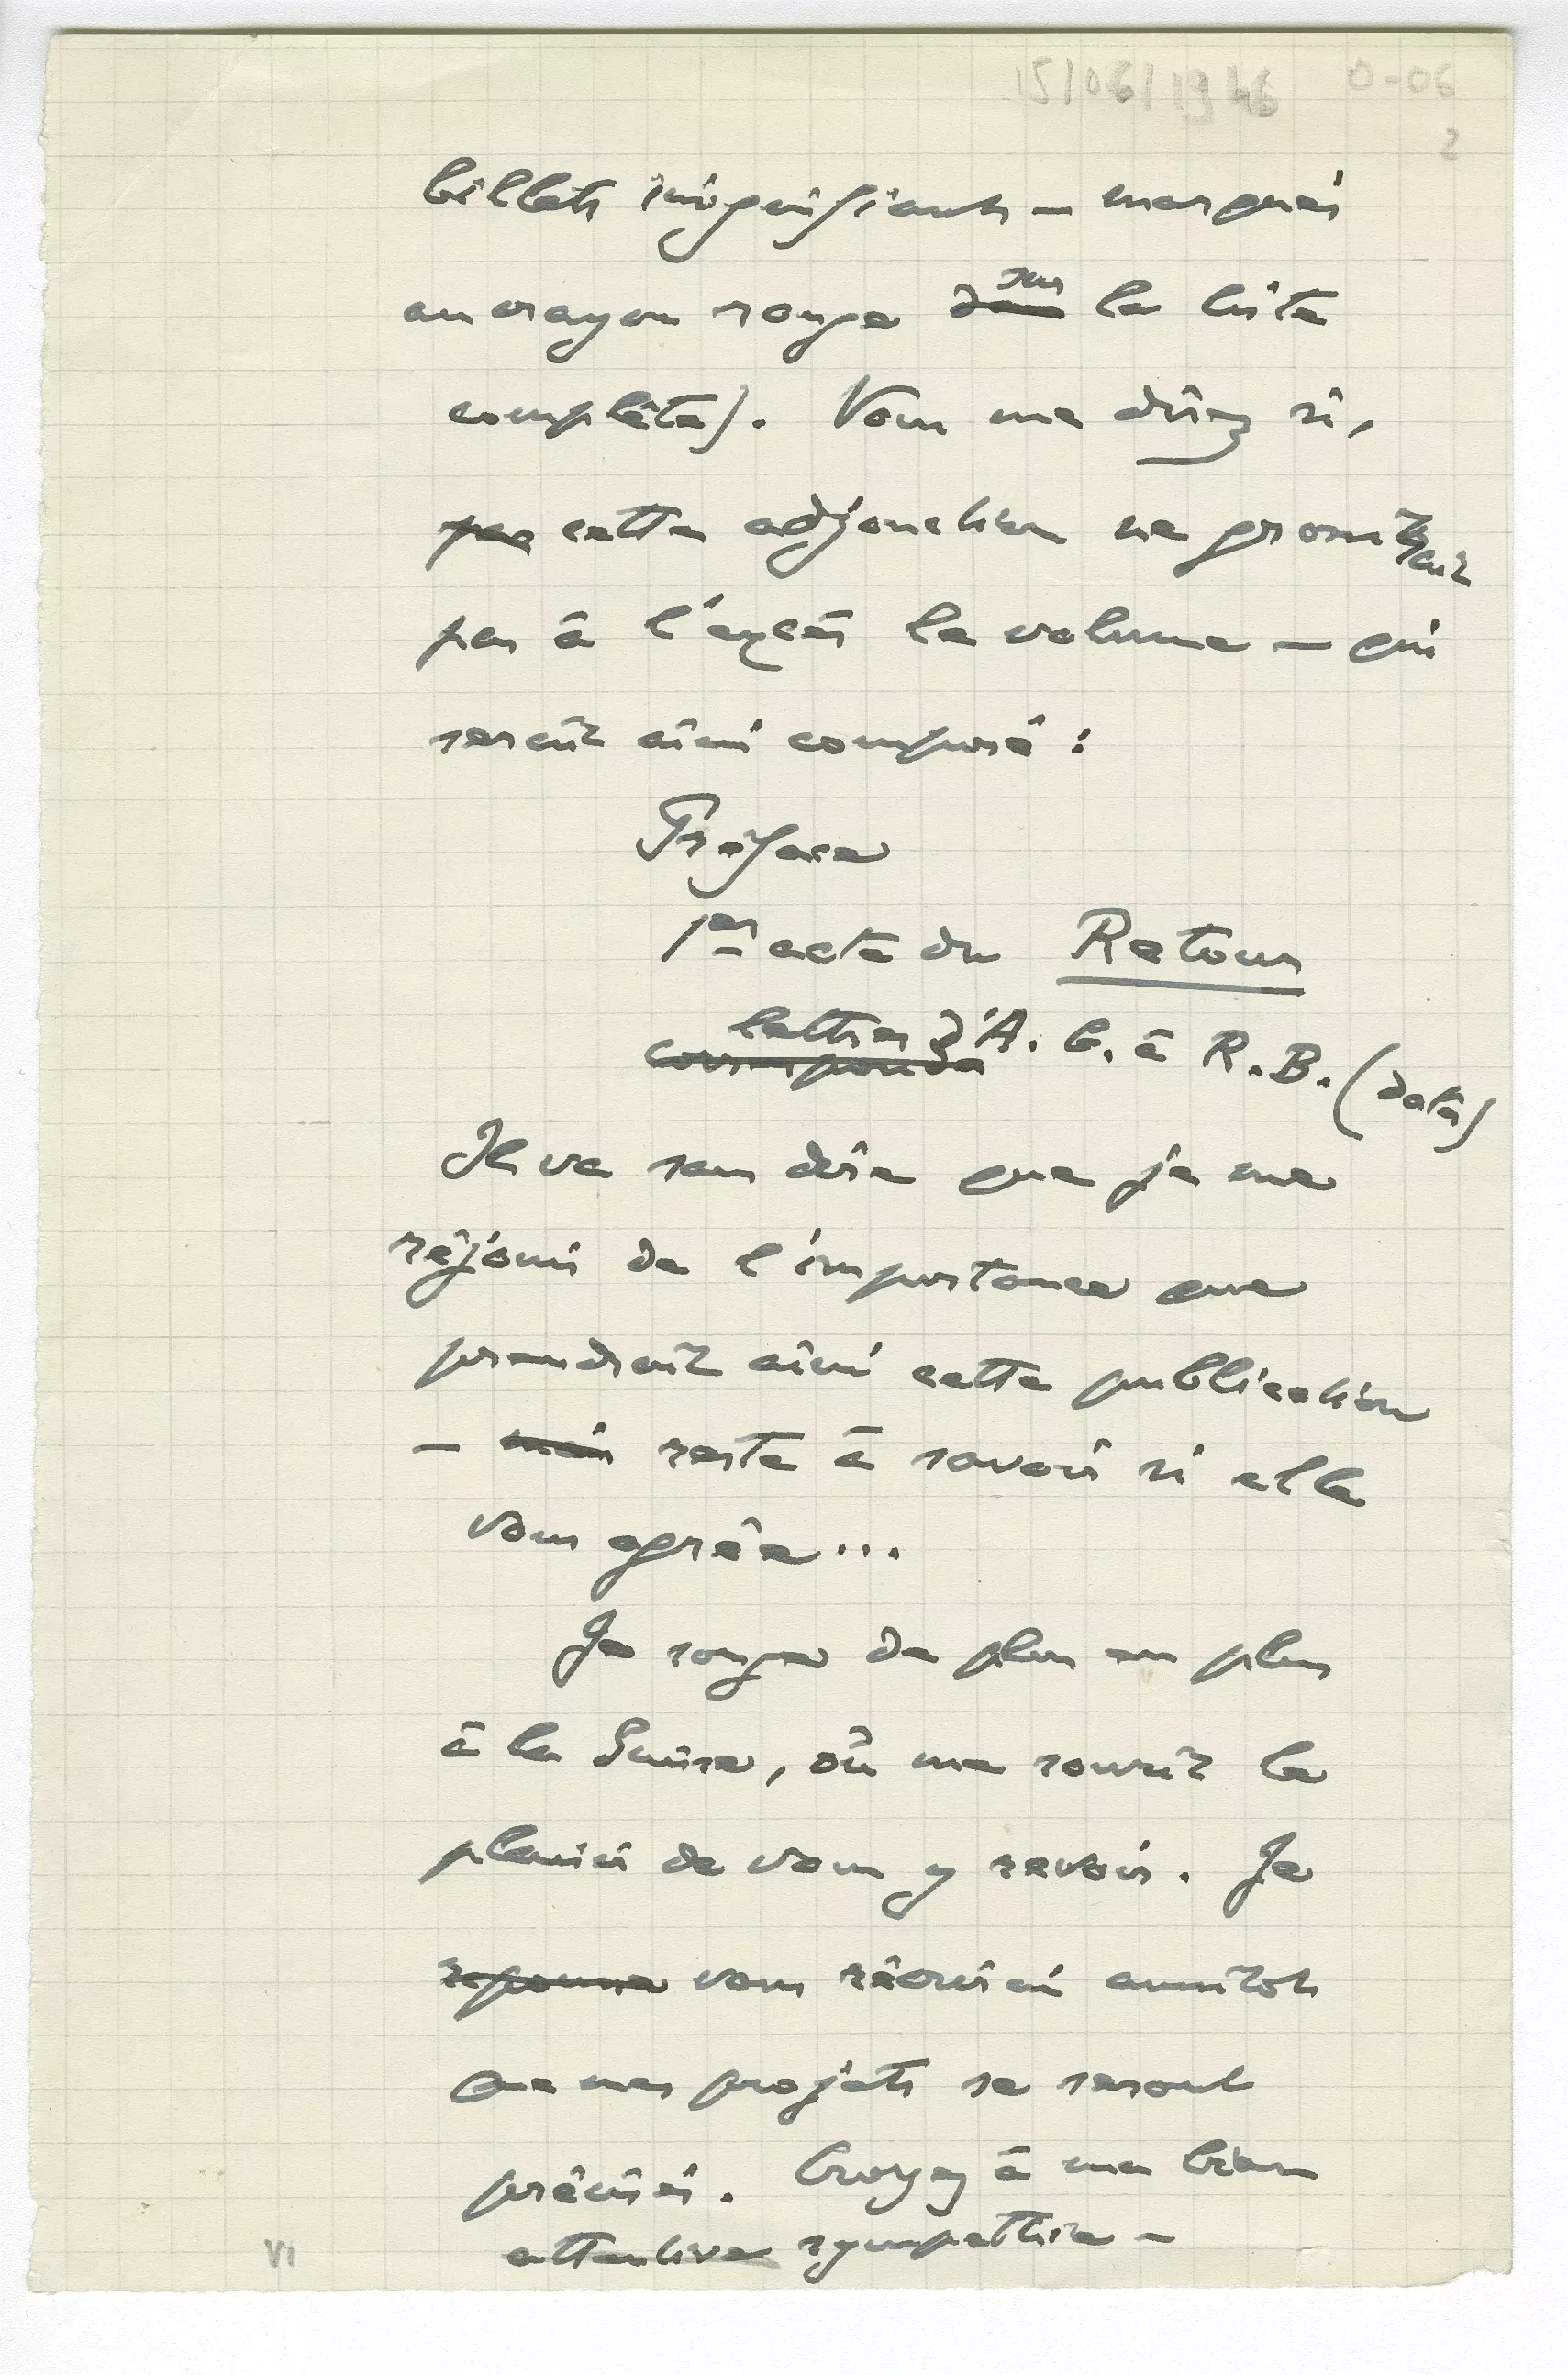 15/06/1946 0-06
2
billets insignifiants – marqués
au crayon rouge dans sur la liste
complète). Vous me direz si,
par cette adjonction ne grossirait
pas à l'excès le volume – qui
serait ainsi composé :
Préface
1er acte du Retour
corresponda lettres d'A. G. à R. B. (dates)
Il va sans dire que je me
réjouis de l'importance que
prendrait ainsi cette publication
– mais reste à savoir si elle
vous agrée...
Je songe de plus en plus
à la Suisse, où me sourit le
plaisir de vous y revoir. Je
vous récrirai aussitôt
que mes projets se seront
précisés. Croyez à ma bien
attentive sympathie –
VI